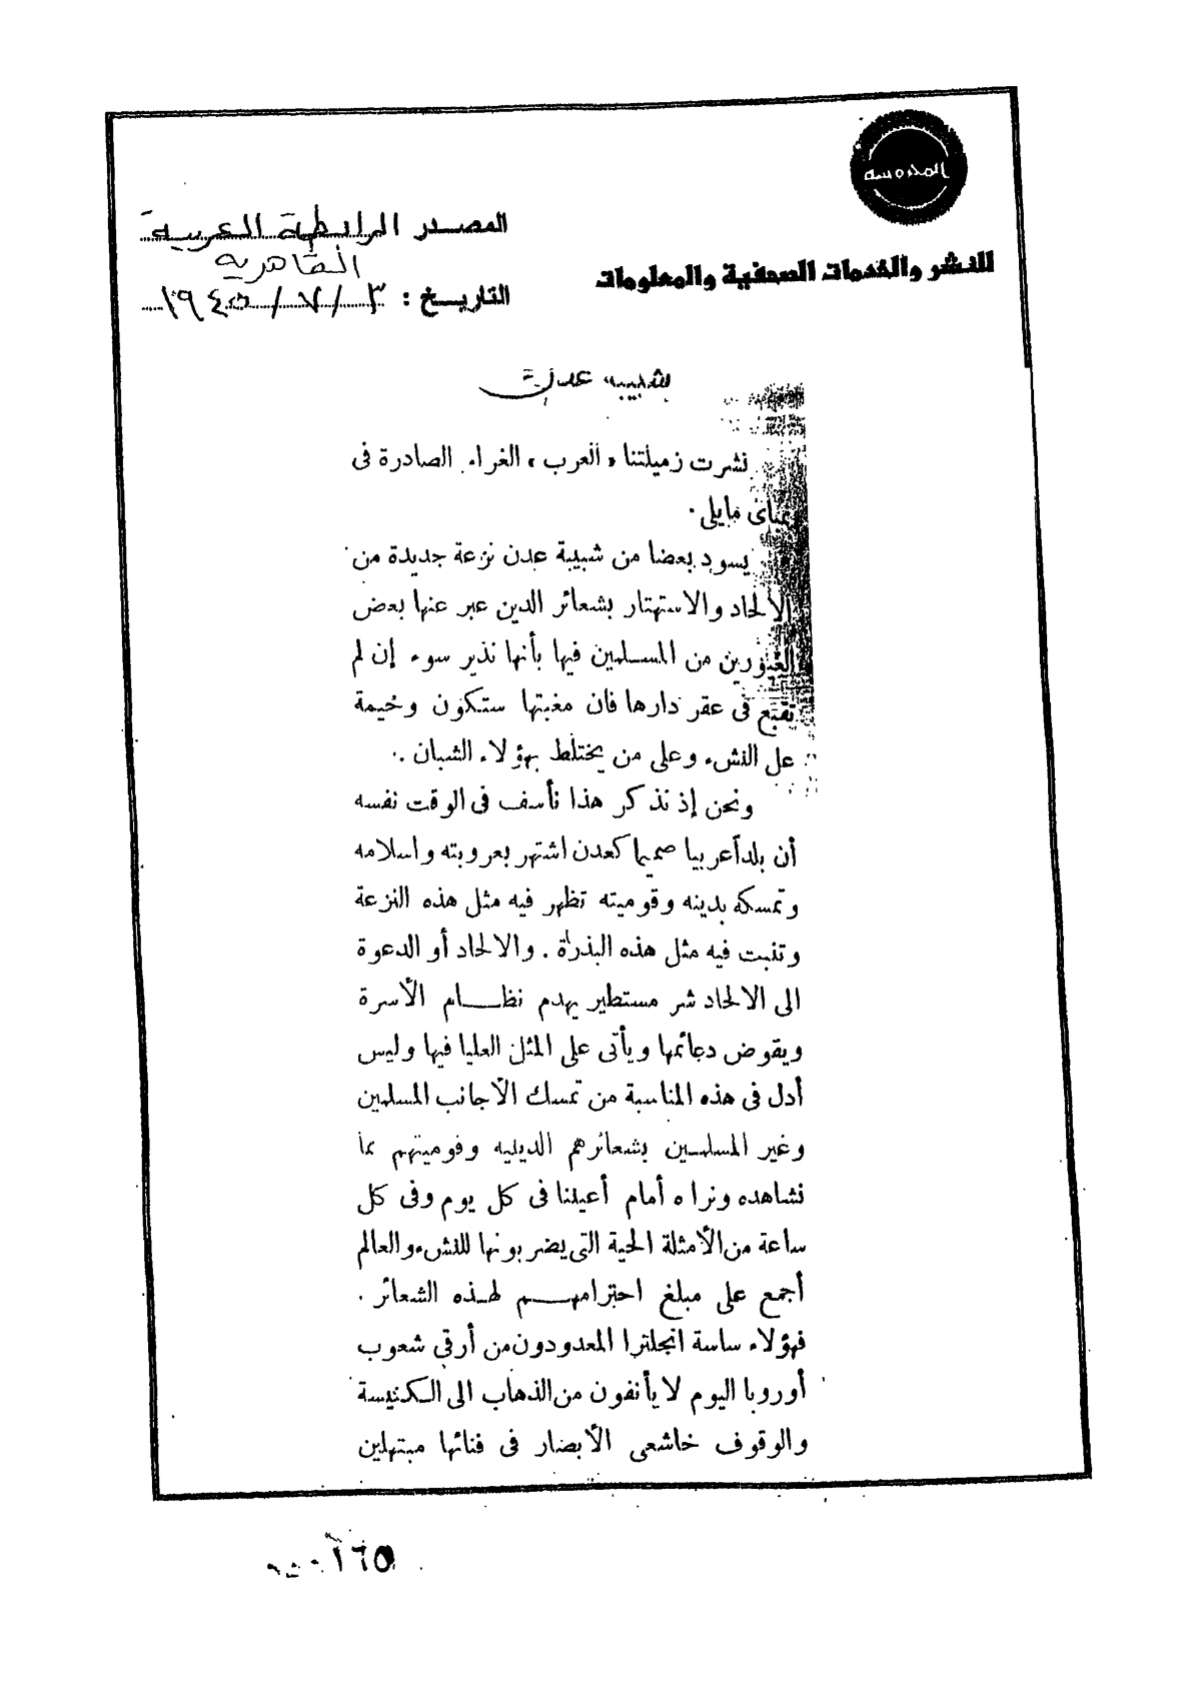 المحروسة
للنشر والخدمات الصحفية والمعلومات
المصدر الرابطة العربية
القاهرية
التاريخ : ٣ / ٧ / ١٩٤٥
شبيبة عدن
نشرت زميلتنا « العرب » الغراء الصادرة فى
بمباى مايلى .
يسود بعضا من شبيبة عدن نزعة جديدة من
الالحاد والاستهتار بشعائر الدين عبر عنها بعض
الغيورين من المسلمين فيها بأنها نذير سوء إن لم
تقبع فى عقر دارها فان مغبتها ستكون وخيمة
على النشء وعلى من يختلط بهؤلاء الشبان .
ونحن إذ نذكر هذا نأسف فى الوقت نفسه
أن بلداً عربيا صميما كعدن اشتهر بعروبته واسلامه
وتمسكه بدينه وقوميته تظهر فيه مثل هذه النزعة
وتنبت فيه مثل هذه البذرة . والالحاد أو الدعوة
الى الالحاد شر مستطير يهدم نظام الأسرة
ويقوض دعائمها ويأتى على المثل العليا فيها وليس
أدل فى هذه المناسبة من تمسك الأجانب المسلمين
وغير المسلمين بشعائرهم الدينيه وقوميتهم مما
نشاهده ونراه أمام أعيننا فى كل يوم وفى كل
ساعة من الأمثلة الحية التى يضربونها للنشء والعالم
أجمع على مبلغ احترامهم لهذه الشعائر .
فهؤلاء ساسة انجلترا المعدودون من أرقى شعوب
أوروبا اليوم لا يأنفون من الذهاب الى الكنيسة
والوقوف خاشعى الأبصار فى فنائها مبتهلين